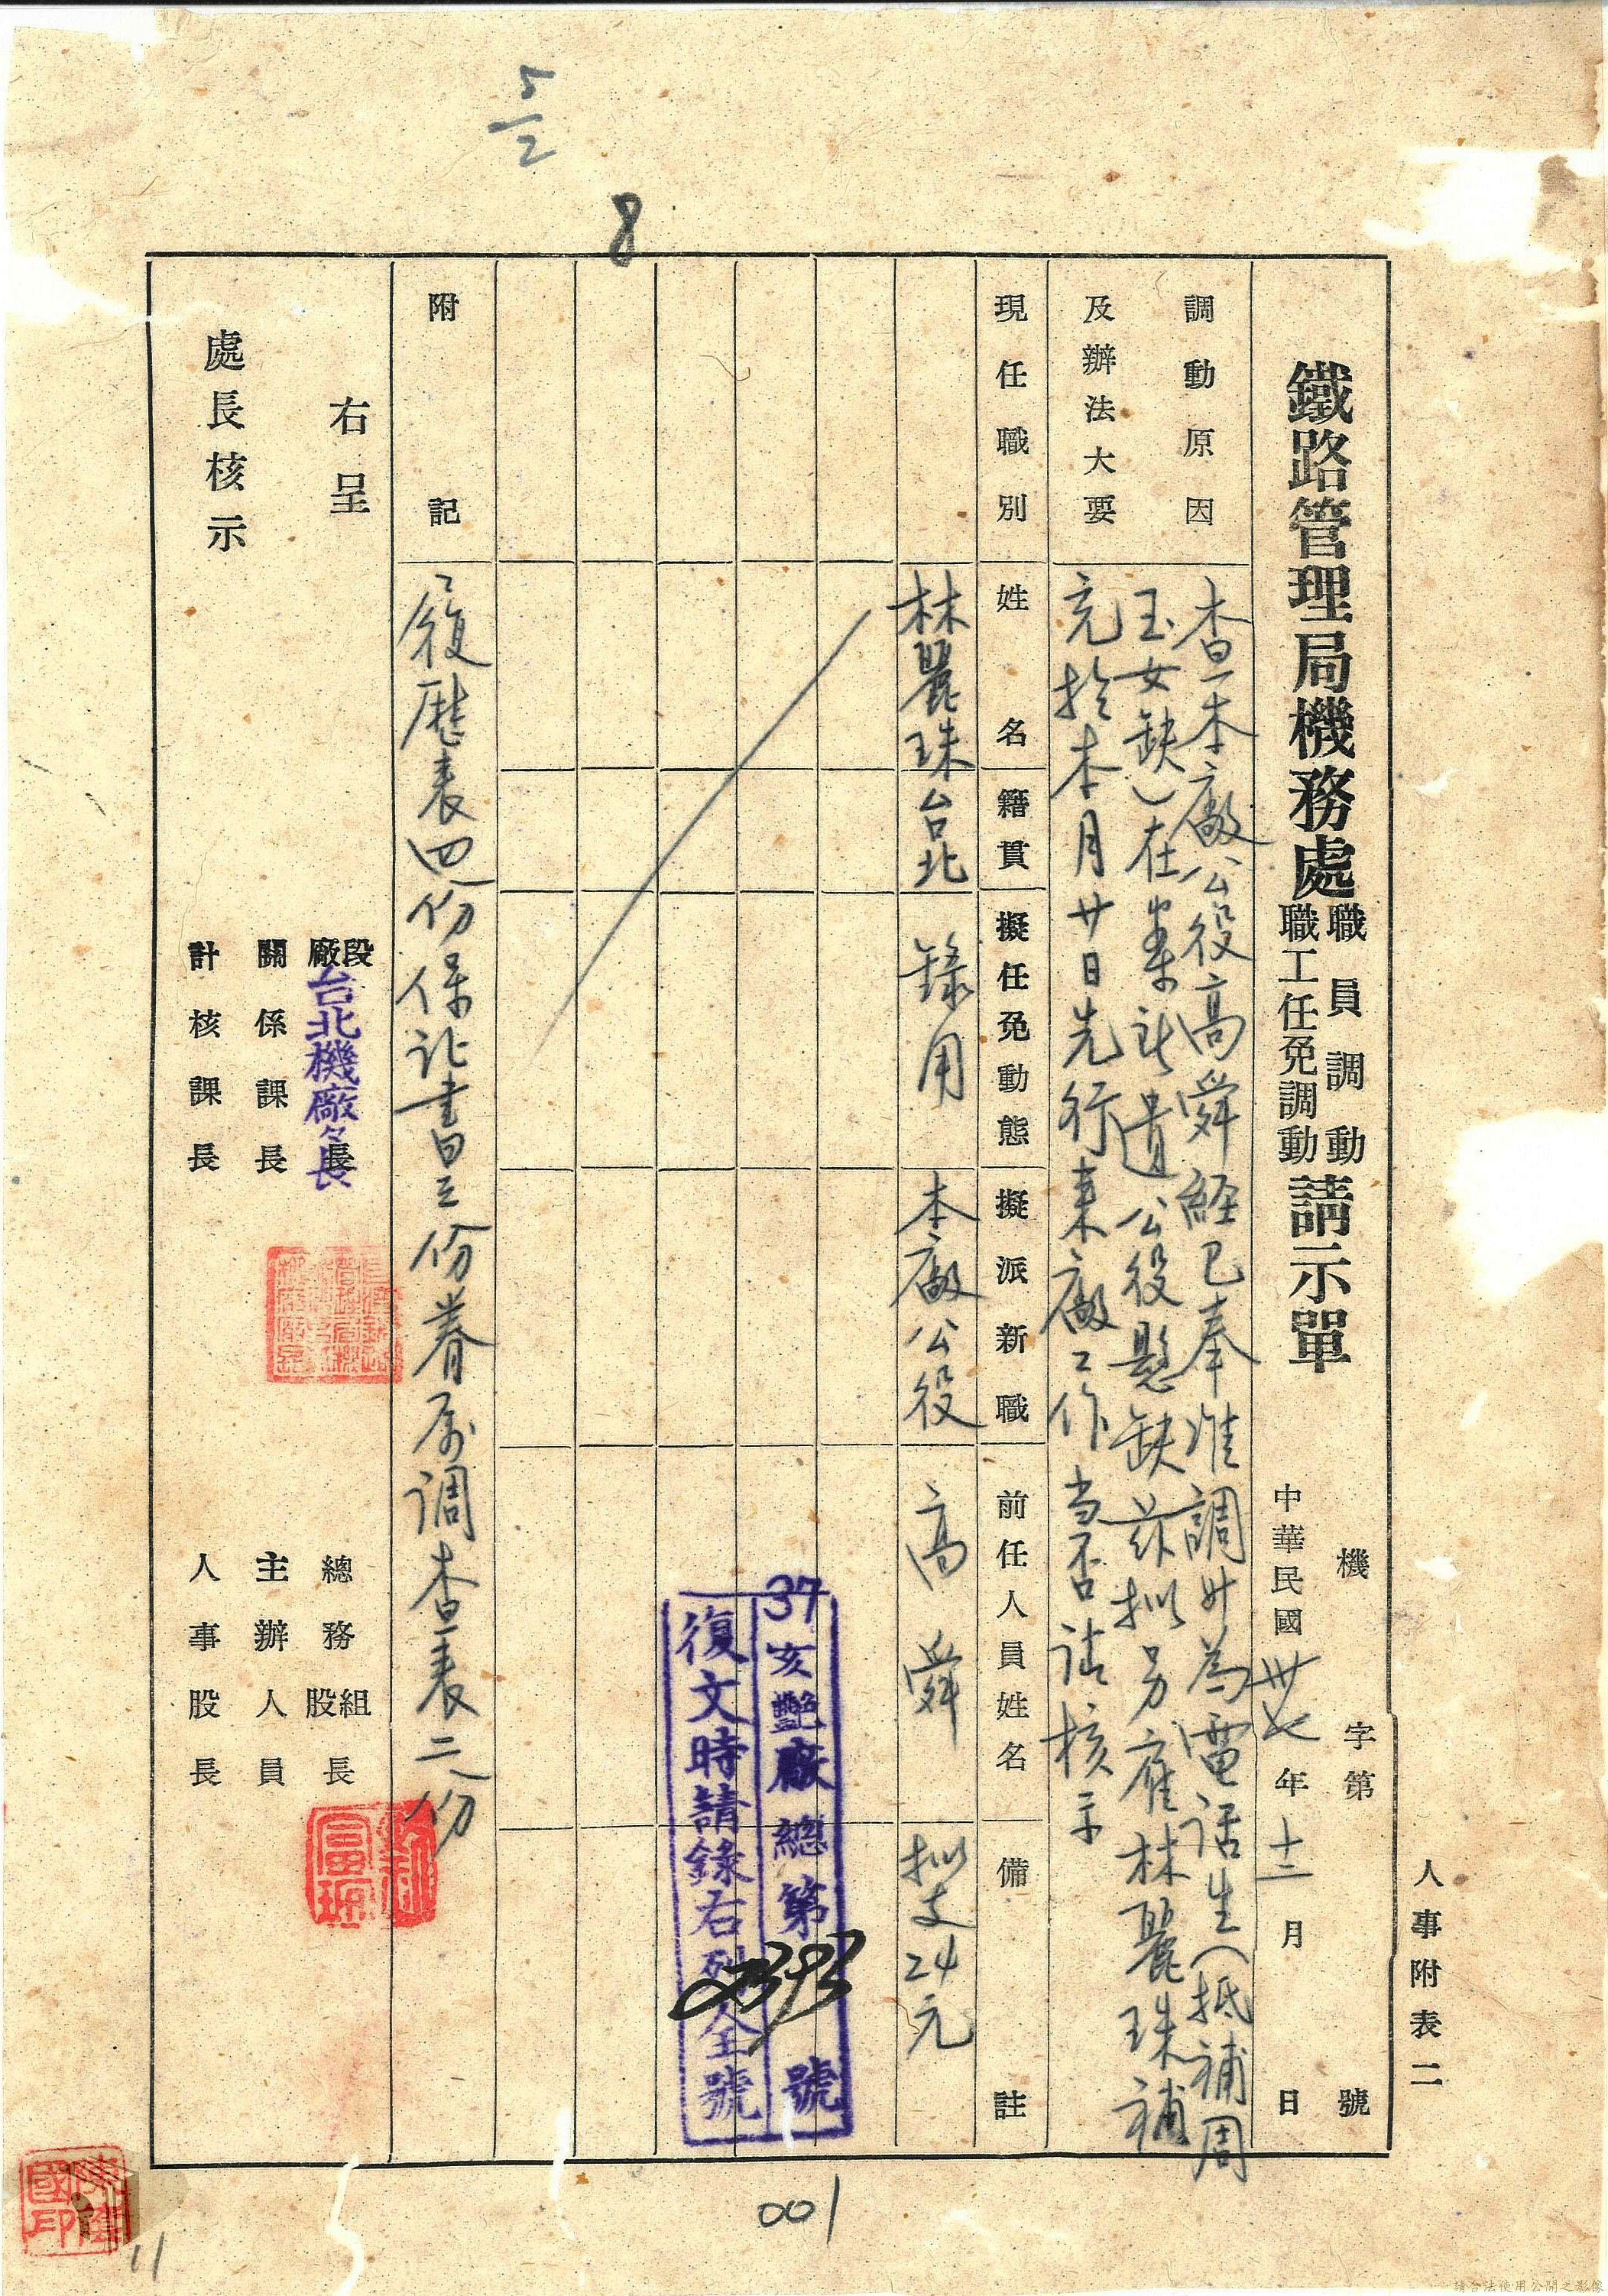 人事附表二
鐵路管理局機務處職員調動職工任免調動請示單
機 字第 號
中華民國卅七年十二月 日
調動原因及辦法大要
查本廠公役高舜経已奉准調升為電话生（抵補周
玉女缺）在案所遺公役懸缺茲拟另雇林麗珠補
充於本月廿日先行来廠工作当否请核示
現任職別 姓名 籍貫 擬任免動態 擬派新職 前任人員姓名 備註
林麗珠 台北 錄用 本廠公役 高舜 拟支24元
37亥艷廠總第 2393 號
復文時請錄右列全號
附記
履歷表四份保证書三份眷属调查表二份
右呈
處長核示
廠段長 台北機廠々長
關係課長
計核課長
總務組股長
主辦人員
人事股長
8
001
11
國印
請合法使用公開之影像